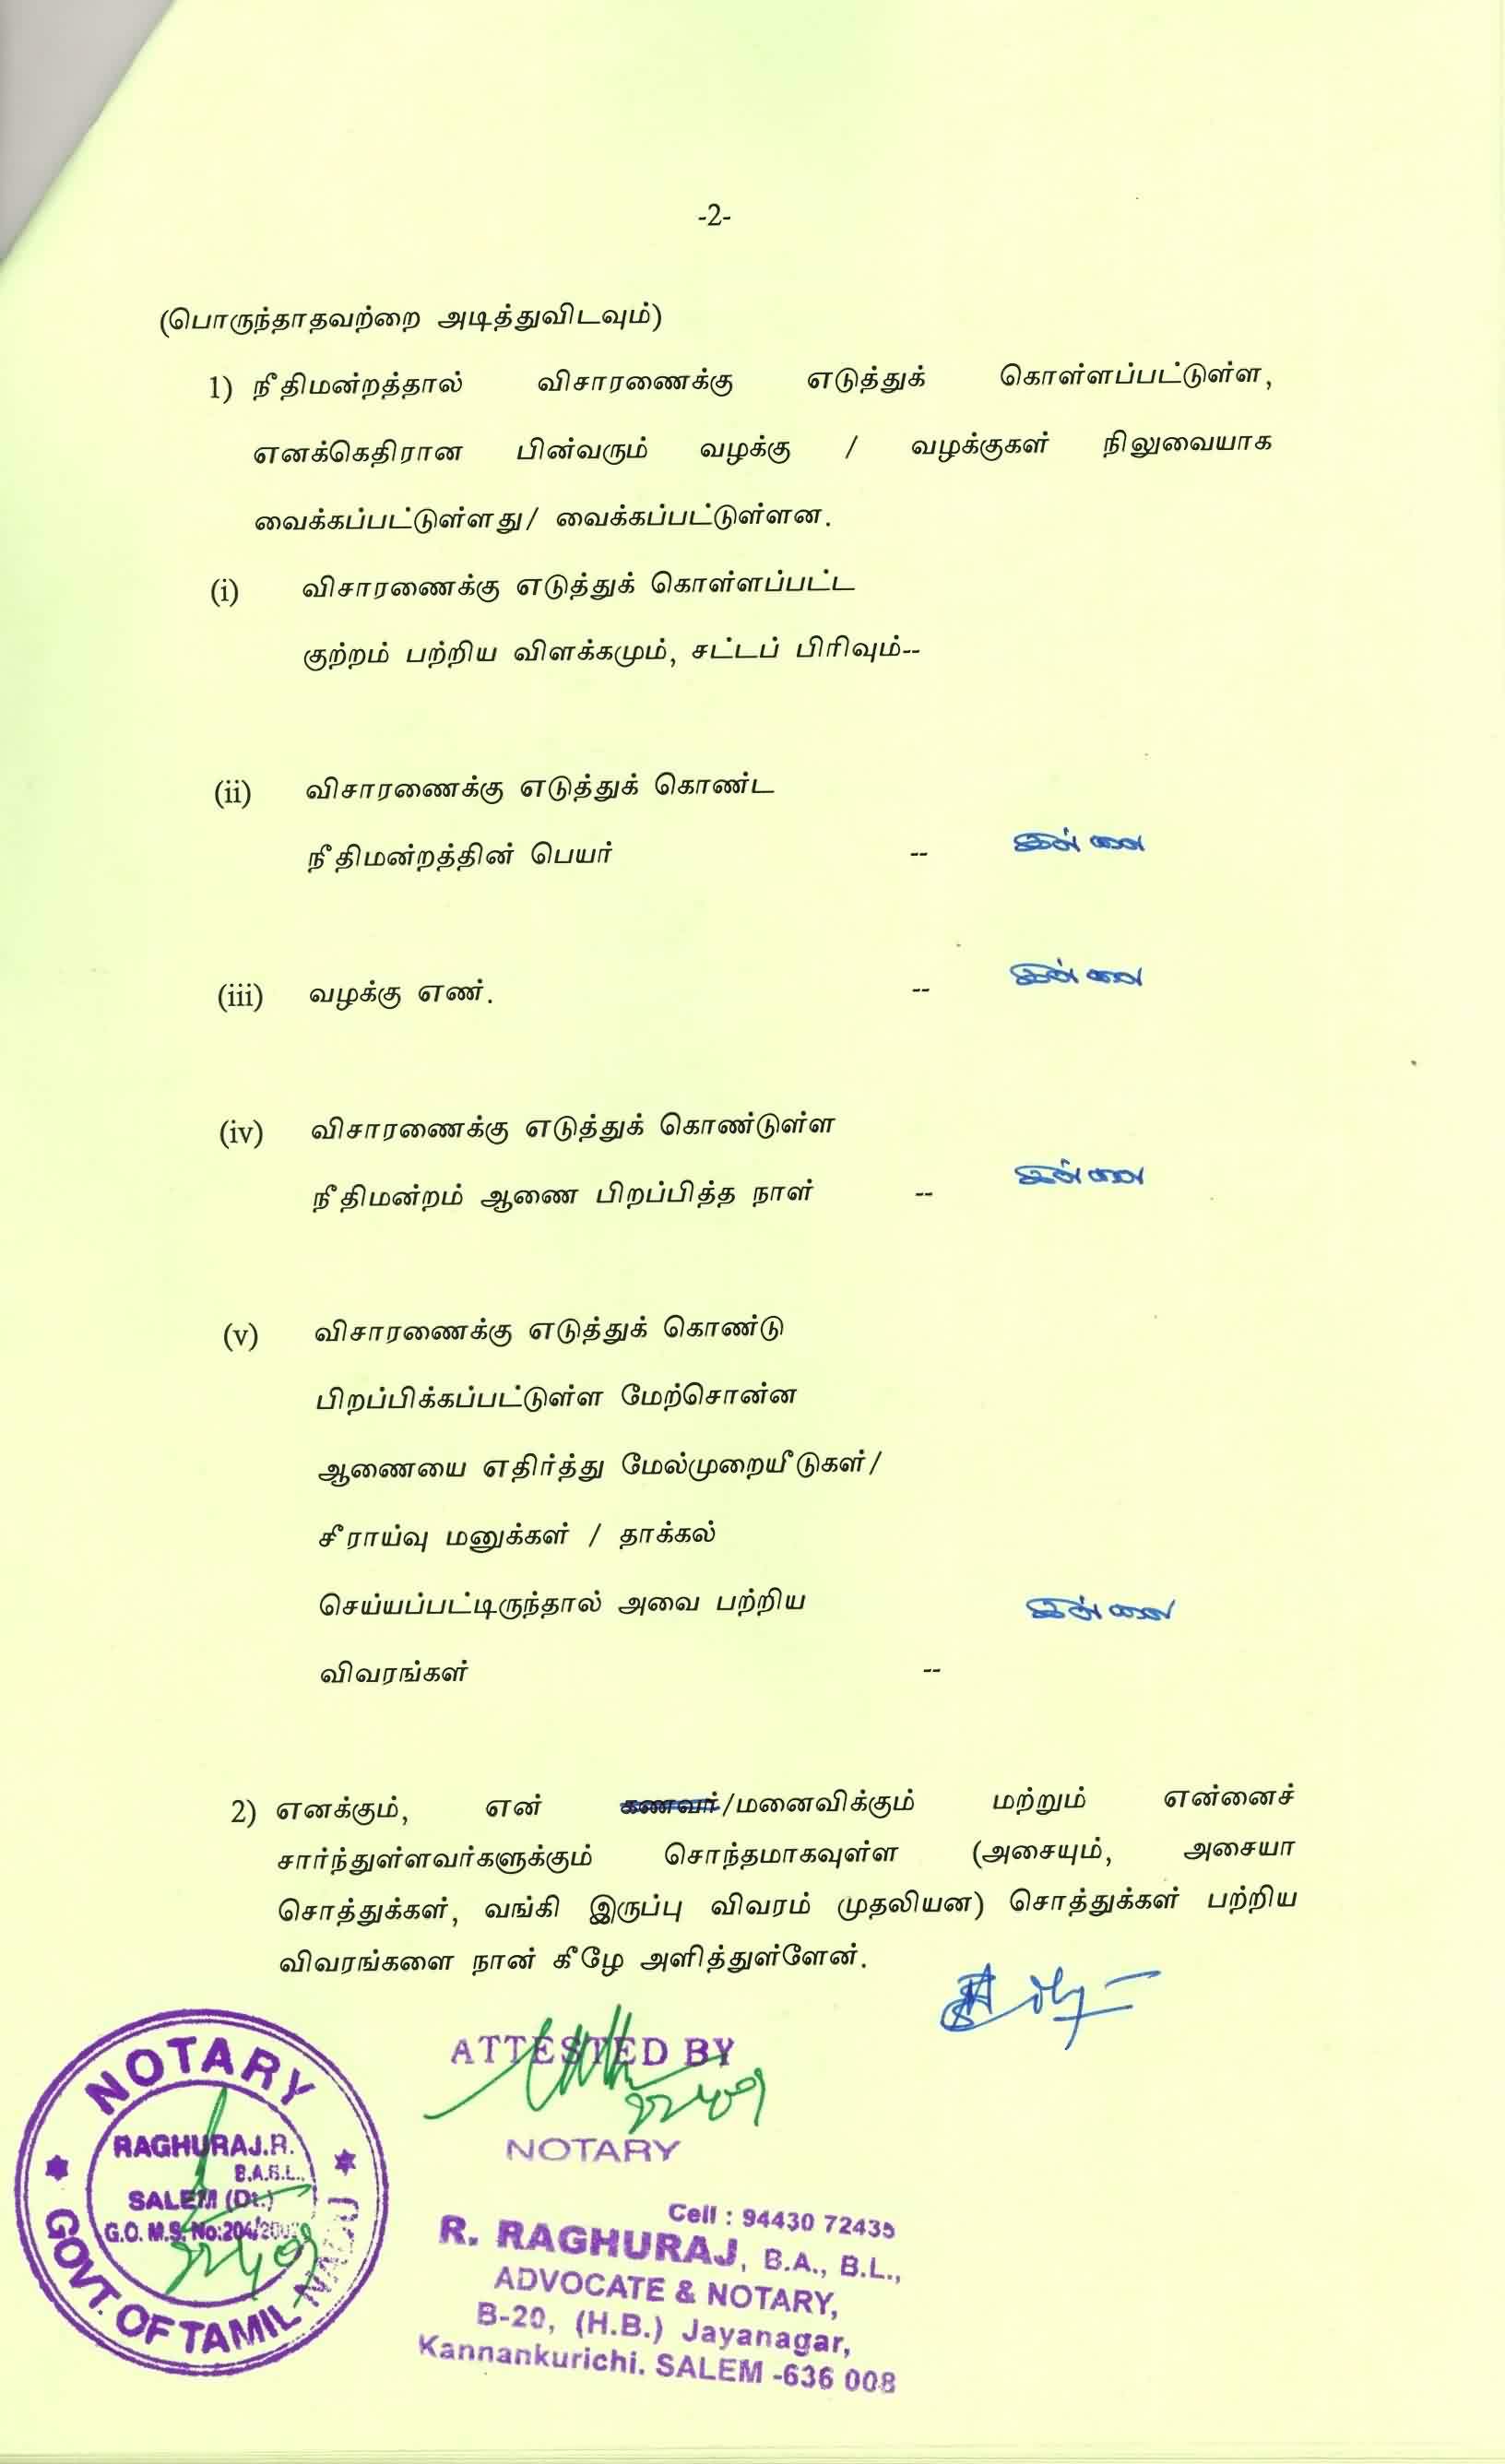 -2-
(பொருந்தாதவற்றை அடித்துவிடவும்)
1) நீதிமன்றத்தால் விசாரணைக்கு எடுத்துக் கொள்ளப்பட்டுள்ள,
எனக்கெதிரான பின்வரும் வழக்கு / வழக்குகள் நிலுவையாக
வைக்கப்பட்டுள்ளது/ வைக்கப்பட்டுள்ளன.
(i) விசாரணைக்கு எடுத்துக் கொள்ளப்பட்ட
குற்றம் பற்றிய விளக்கமும், சட்டப் பிரிவும்--
(ii) விசாரணைக்கு எடுத்துக் கொண்ட
நீதிமன்றத்தின் பெயர் -- இல்லை
(iii) வழக்கு எண். -- இல்லை
(iv) விசாரணைக்கு எடுத்துக் கொண்டுள்ள
நீதிமன்றம் ஆணை பிறப்பித்த நாள் -- இல்லை
(v) விசாரணைக்கு எடுத்துக் கொண்டு
பிறப்பிக்கப்பட்டுள்ள மேற்சொன்ன
ஆணையை எதிர்த்து மேல்முறையீடுகள்/
சீராய்வு மனுக்கள் / தாக்கல்
செய்யப்பட்டிருந்தால் அவை பற்றிய இல்லை
விவரங்கள் --
2) எனக்கும், என் கணவர்/மனைவிக்கும் மற்றும் என்னைச்
சார்ந்துள்ளவர்களுக்கும் சொந்தமாகவுள்ள (அசையும், அசையா
சொத்துக்கள், வங்கி இருப்பு விவரம் முதலியன) சொத்துக்கள் பற்றிய
விவரங்களை நான் கீழே அளித்துள்ளேன்.
ATTESTED BY
NOTARY
NOTARY
RAGHURAJ.R.
B.A.B.L.,
SALEM (Dt.)
G.O. M.S. No:204/
GOVT. OF TAMIL NADU
Cell : 94430 72435
R. RAGHURAJ, B.A., B.L.,
ADVOCATE & NOTARY,
B-20, (H.B.) Jayanagar,
Kannankurichi. SALEM -636 008